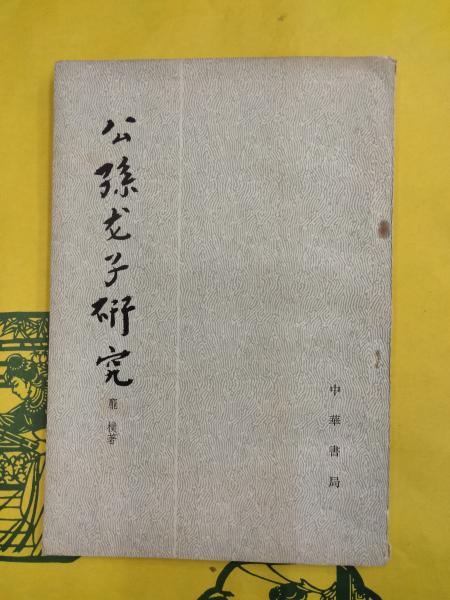 公孫龙子研究
龐樸著
中華書局